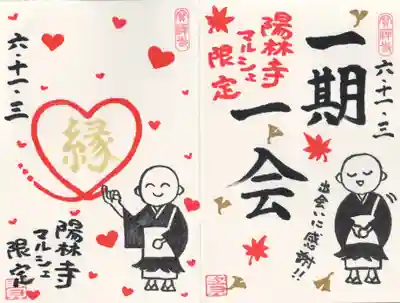 六・十一・三
縁
陽林寺
マルシェ
限定
一期
一会
陽林寺
マルシェ
限定
六・十一・三
出会いに感謝!!